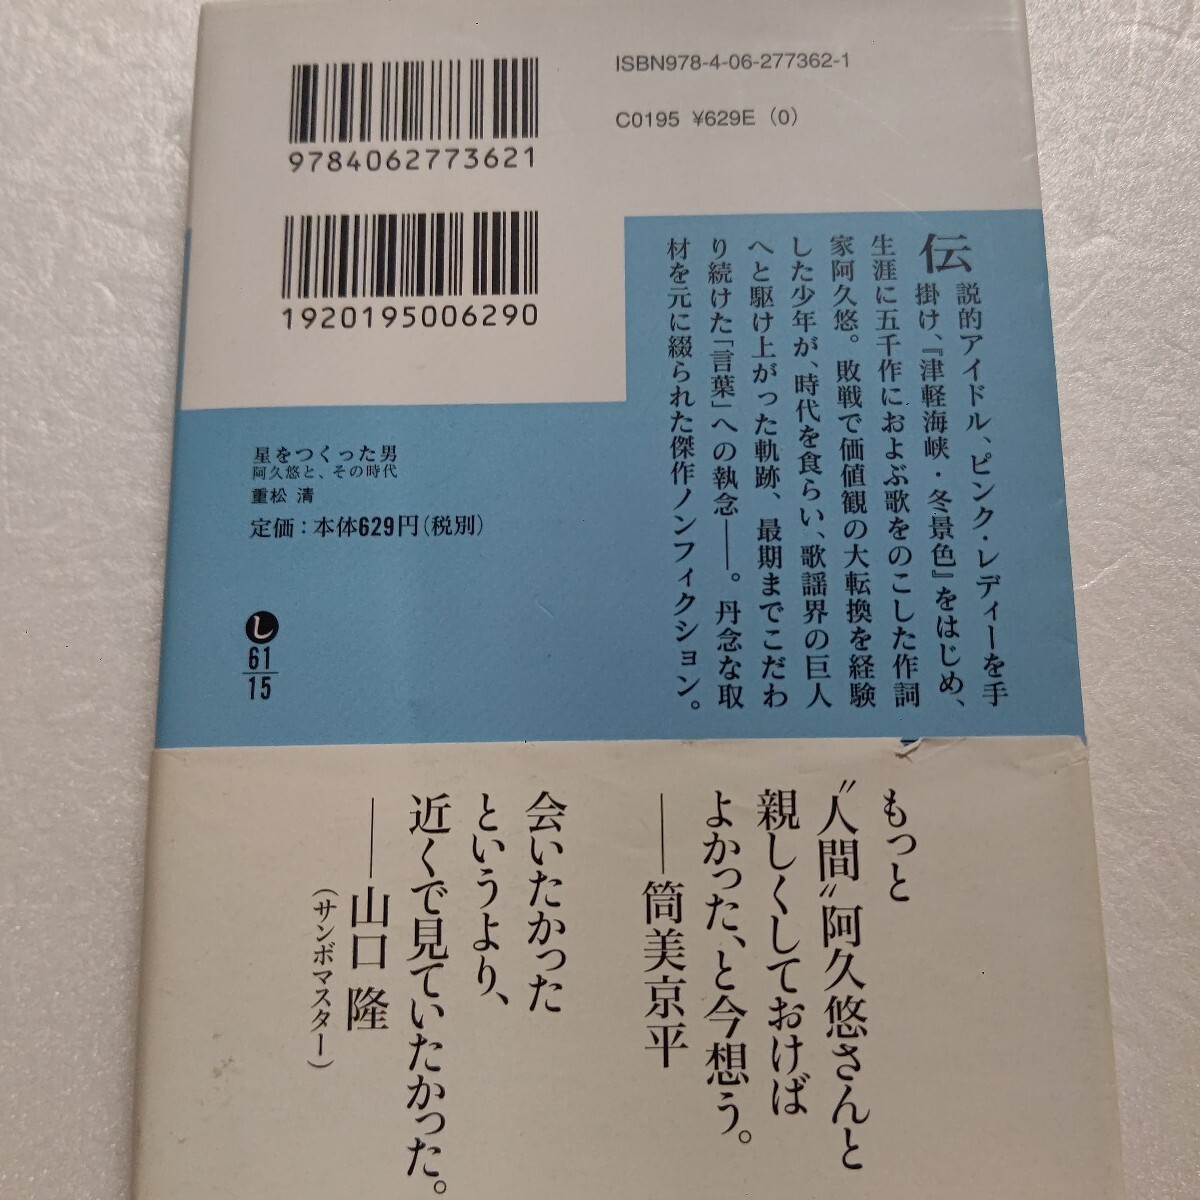 9784062773621
1920195006290
ISBN978-4-06-277362-1
C0195 ¥629E (0)
伝説的アイドル、ピンク・レディーを手
掛け、『津軽海峡・冬景色』をはじめ、
生涯に五千作におよぶ歌をのこした作詞
家阿久悠。敗戦で価値観の大転換を経験
した少年が、時代を食らい、歌謡界の巨人
へと駆け上がった軌跡、最期までこだわ
り続けた「言葉」への執念――。丹念な取
材を元に綴られた傑作ノンフィクション。
星をつくった男
阿久悠と、その時代
重松 清
定価：本体629円（税別）
し
61
15
もっと
〝人間〟阿久悠さんと
親しくしておけば
よかった、と今想う。
――筒美京平
会いたかった
というより、
近くで見ていたかった。
――山口 隆
（サンボマスター）